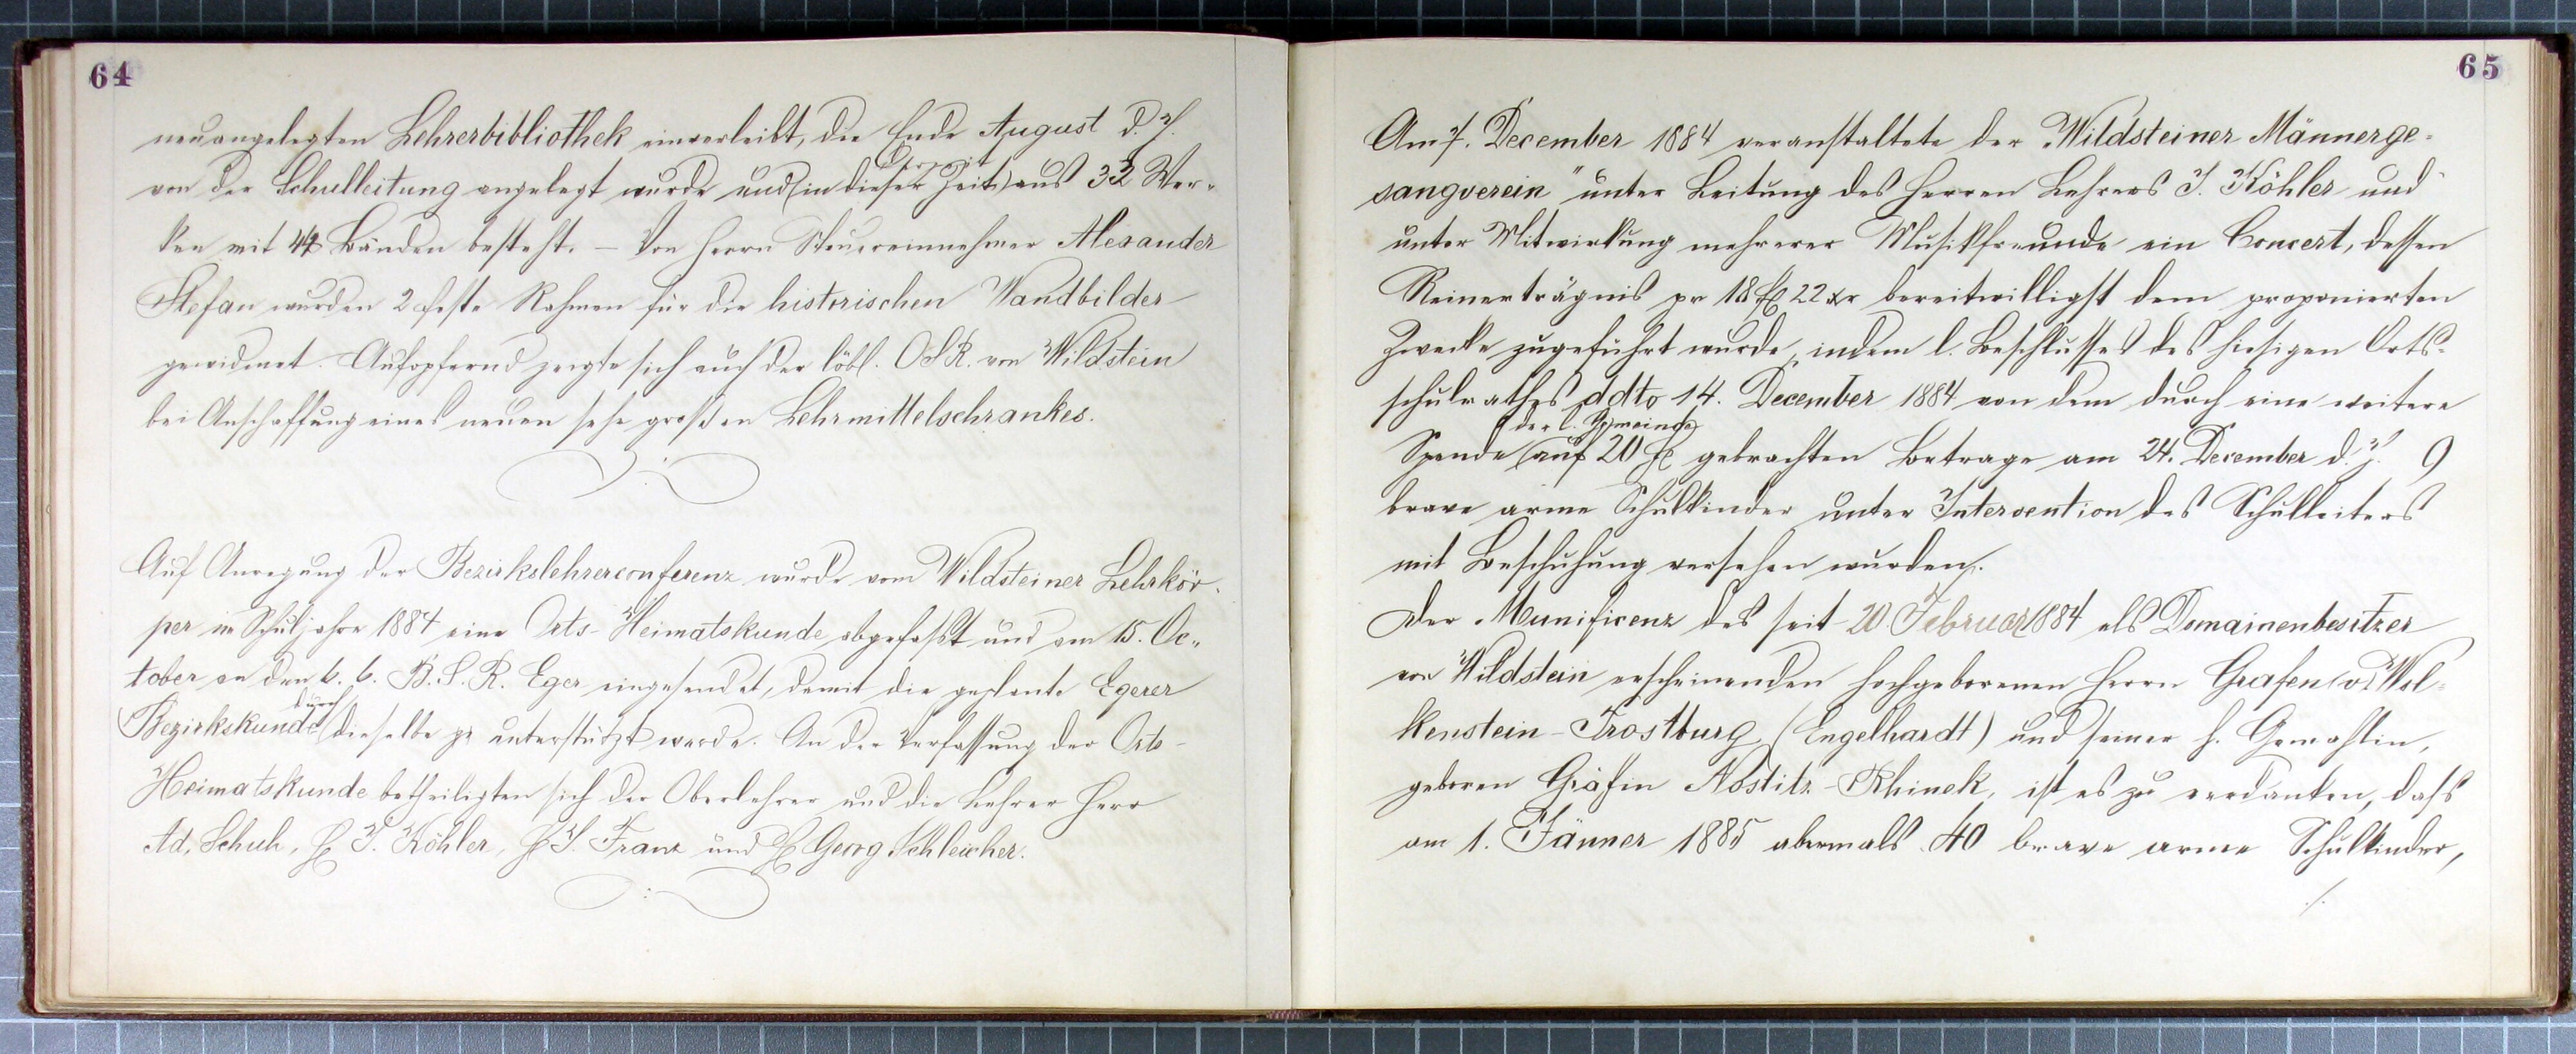 64
neuangelegten Lehrerbibliothek einverleibt, die Ende August d. J.
von der Schulleitung angelegt wurde und (in dieser Zeit) aus 32 Wer-
derzeit
ken mit 44 Bänden besteht. – Von Herrn Steuereinnehmer Alexander
Stefan wurden 2 feste Rahmen für die historischen Wandbilder
gewidmet. Aufopfernd zeigte sich auch der löbl. OSR. von Wildstein
bei Anschaffung eines neuen sehr großen Lehrmittelschrankes.
Auf Anregung der Bezirkslehrerconferenz wurde vom Wildsteiner Lehrkör-
per im Schuljahre 1884 eine Orts-Heimatskunde abgefaßt und am 15. Oc-
tober an den k. k. B. S. R. Eger eingesendet, damit die geplante Egerer
durch
Bezirkskunde dieselbe unterstützt werde. An der Verfassung der Orts-
Heimatskunde betheiligten sich der Oberlehrer und die Lehrer Herr
Ad. Schuh, H J. Köhler, H J. Franz und H Georg Schleicher.
65
Am 7. December 1884 veranstaltete der „Wildsteiner Männerge-
sangverein" unter Leitung des Herren Lehrers J. Köhler und
unter Mitwirkung mehrerer Musikfreunde ein Concert, dessen
Reinerträgnis pr 18 fl 22 xr bereitwilligst dem proponierten
Zwecke zugeführt wurde, indem l. Beschlusses des hiesigen Orts-
schulrathes ddto 14. December 1884 von dem durch eine weitere
der l. Gemeinde
Spende auf 20 fl gebrachten Betrage am 24. December d. J. 9
brave arme Schulkinder unter Intervention des Schulleiters
mit Beschuhung versehen wurden.
Der Munificenz des seit 20. Februar 1884 als Domainenbesitzer
von Wildstein erscheinenden hochgeborenen Herrn Grafen v. Wol-
kenstein-Trostburg (Engelhardt) und seiner h. Gemahlin,
geboren Gräfin Nostitz-Rhinek, ist es zu verdanken, dass
am 1. Jänner 1885 abermals 40 brave arme Schulkinder,
./.